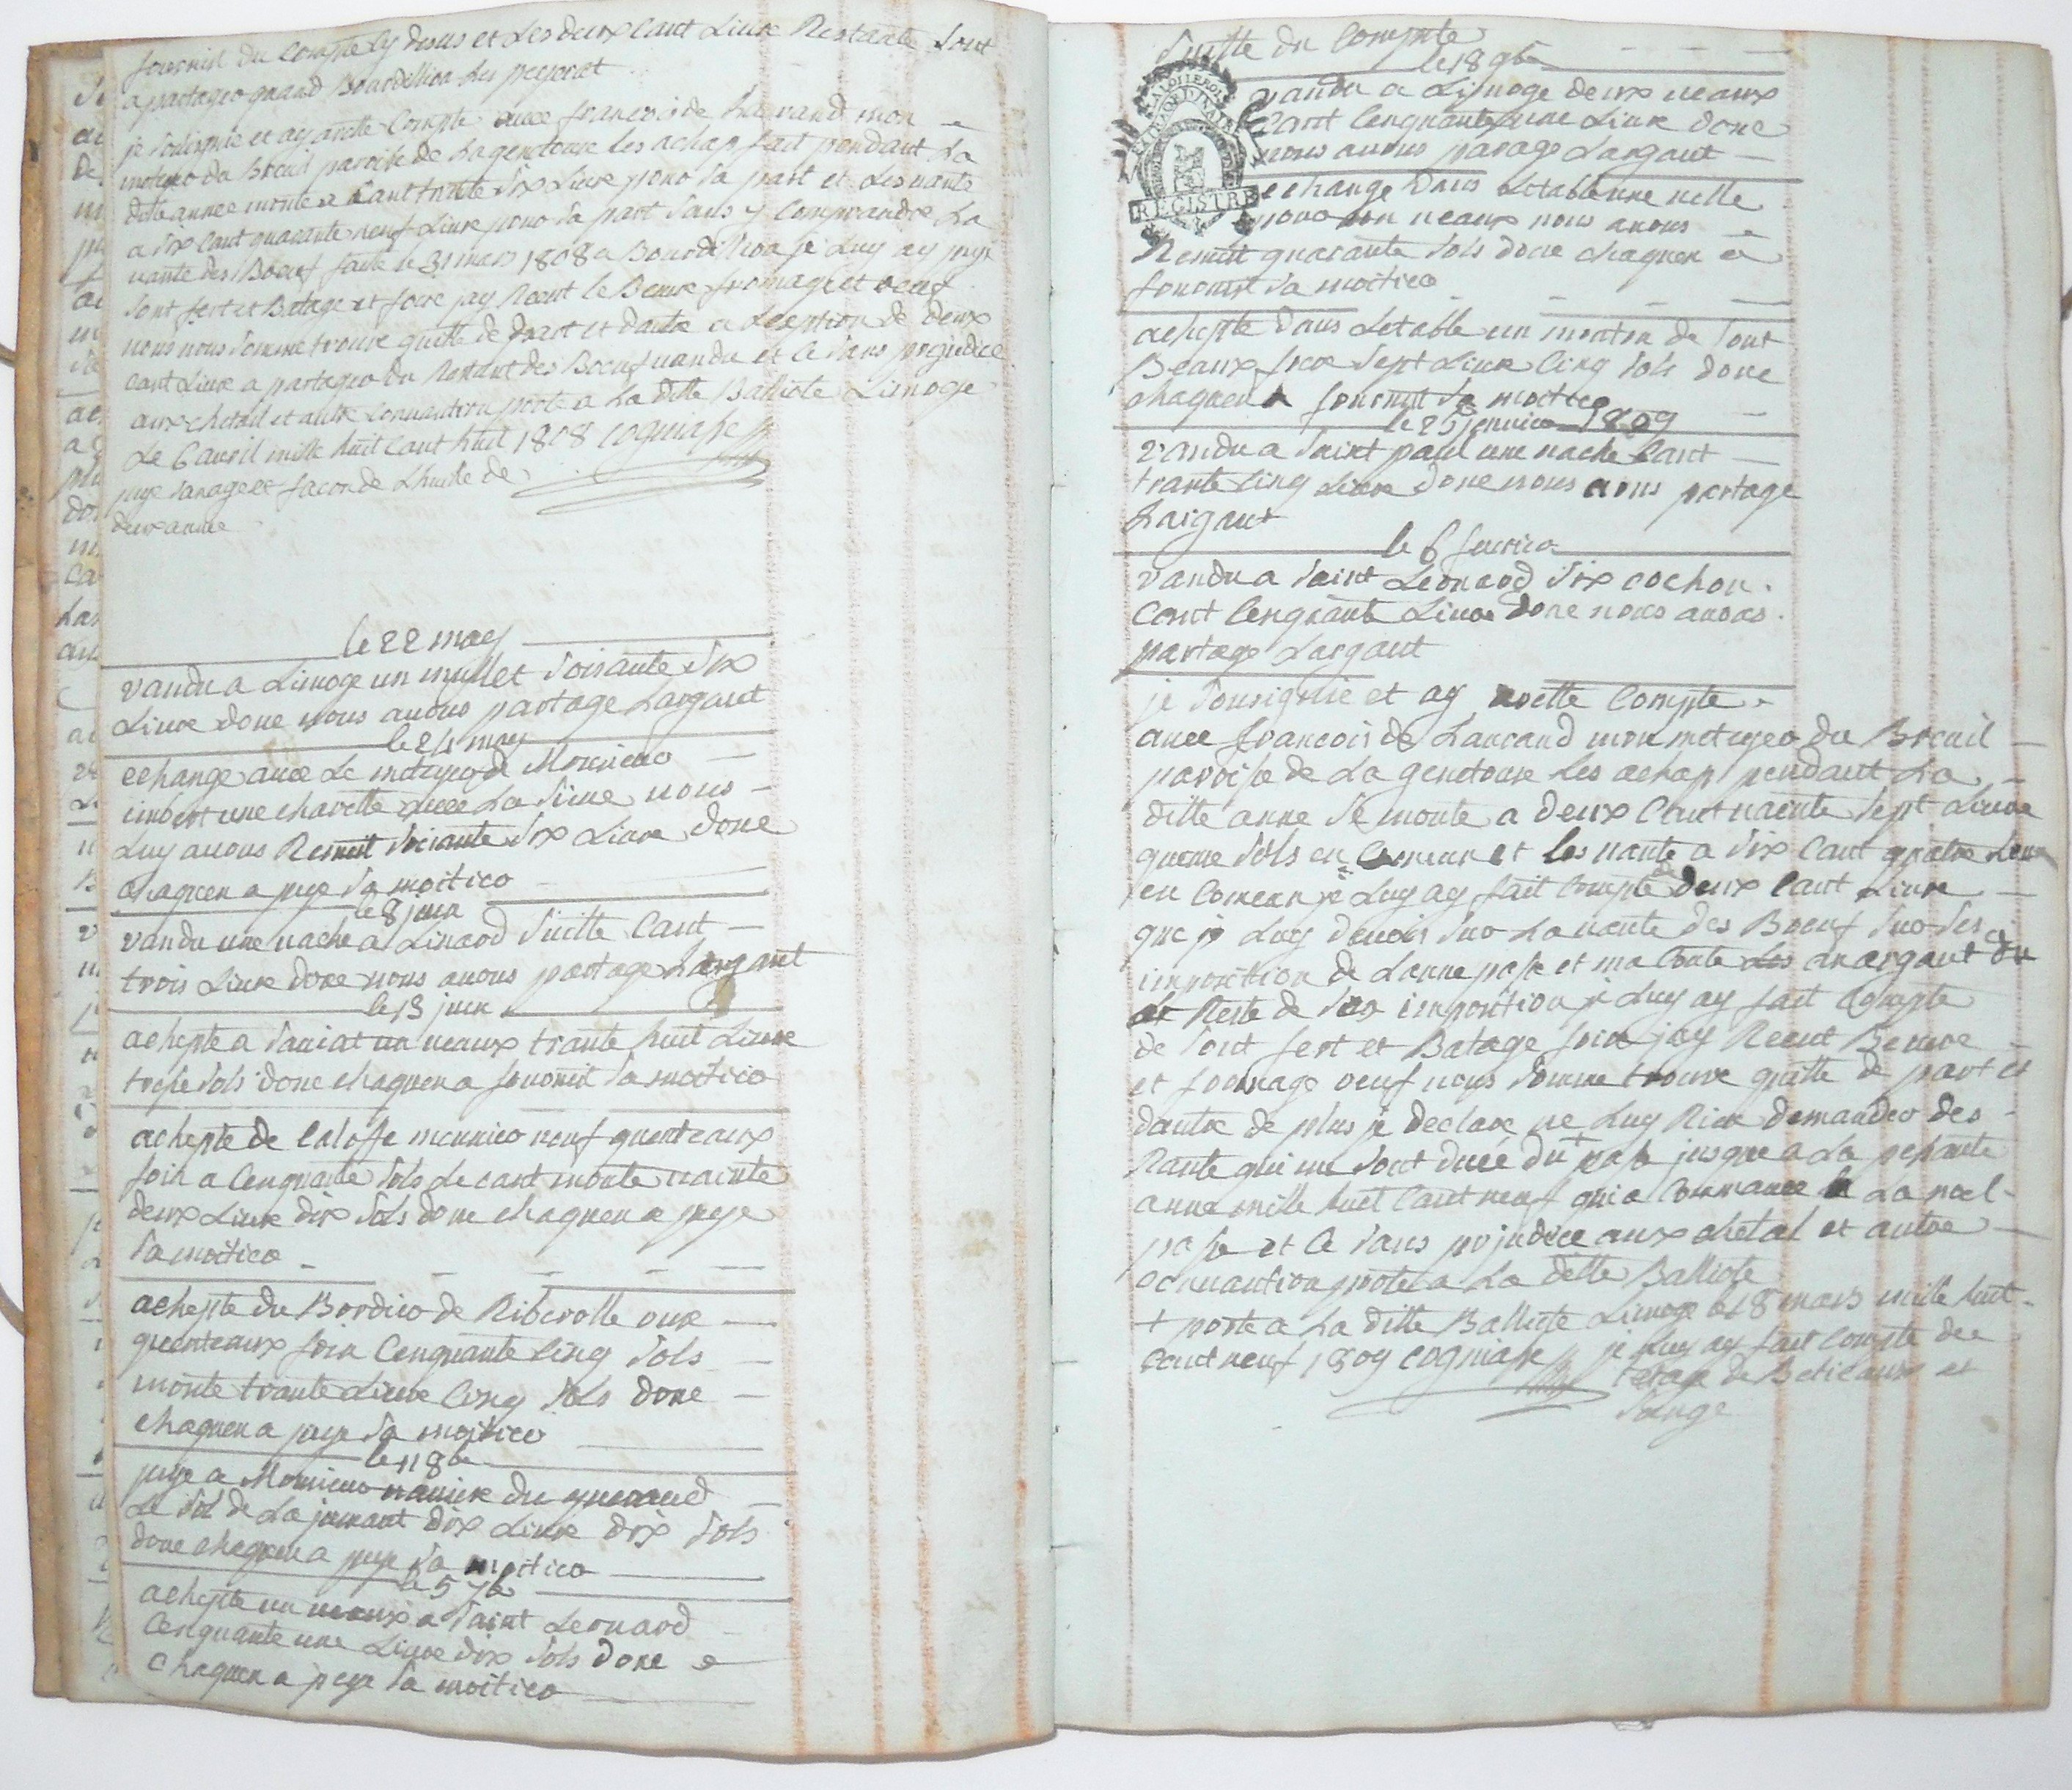 fournit du Compte Cy desus et Les deux Cant Livre Restante Sont
a partager quand Bourdillion Les peyerat
je Sousignie et ay arette Compte avec francois de Lavaud mon
metayer du Breuil paroise de Lagenetouse les achap fait pendant La
ditte annee monte a Cant trante Six Livre pour Sa part et Les vante
a Six Cant quarante neuf Livre pour Sa part Sans y Comprandre La
vante des Boeuf faite le 31 mars 1808 a Bourdillion je Luy ay peye
Sont fert et Batage et foire jay Recut le Beure fromage et oeuf
nous nous Somme trouve quitte de part et dautre a Lexeption de deux
Cant Livre a partager du Restant des Boeuf vandu et Ce Sans prejudice
aux chetail et autre Convantion porte a La ditte Balliete Limoge
Le 6 avril mille huit Cant huit 1808 Cogniasse
peye fanage et facon de Lhuile de
deux anne
le 22 mey
vandu a Limoge un mullet Soisante Six
Livre done nous avons partage Largant
le 24 mey
echange avec Le metayer de Monsieur
imbert une charette avec La Sime nous
Luy avons Remit Soisante Six Livre done
chaquen a peye Sa moitier
le 8 juin
vandu une vache a Linard Suitte Cant
trois Livre done nous avons partage Largant
le 13 juin
achepte a Sauviat un veaux trante huit Livre
trese Sols done chaquen a fournit Sa moitier
achepte de meunier neuf quenteaux
foin a Cenquante Sols Le cant monte vainte
deux Livre dix Sols done chaquen a peye
Sa moitier
achepte du Bordier de Riberolle onze
quenteaux foin Cenquante Cinq Sols
monte trante Livre Cinq Sols done
chaquen a peye Sa moitier
le 11 8be
peye a Monsieur du
Le Sol de La jumant dix Livre dix Sols
done chaquen a peye Sa moitier
le 5 7be
achepte un veaux a Saint Leonard
Cenquante une Livre dix Sols done
chaquen a peye Sa moitier
Suitte du Compte
le 18 9be
vandu a Limoge deux veaux
Cant Cenquante une Livre done
nous avons parage Largant
echange Dans Letable une velle
pour un veaux nous avons
Remit quarante Sols done chaquen a
fournit Sa moitier
achepte dans Letable un mouton de Sont
Beaux frere Sept Livre Cinq Sols done
chaquen a fournit Sa moitier
le 25 janvier 1809
vandu a Saint paul une vache Cant
trante Cinq Livre done nous avons partage
Largant
le 6 fevrier
vandu a Saint Leonard Six cochon
Cant Cenquante Livre done nous avons
partage Largant
je Sousignie et ay arette Compte
avec francois de Lavaud mon metayer du Breuil
paroise de La genetouse Les achap pendant La
ditte anne Se monte a deux Cant vainte Sept Livre
quinse Sols en Comeun et les vante a Six Cant quatre Livre
en Comeun je Luy ay fait Compte de deux Cant Livre
que je Luy devois Sur La vante des Boeuf Sur Ses
imposition de Lanne passe et ma Conte anargant du
Reste de Ses imposition je Luy ay fait Compte
de Sont fert et Batage foire jay Recut Beurre
et froumage oeuf nous Somme trouve quitte de part et
dautre de plus je declare ne Luy Rien demander des
Rante qui me Sont duee du + passe jusque a La pesante
anne mille huit Cant neuf qui a Commance a La noel
passe et Ce Sans prejudice aux chetal et autre
convantion porte a La ditte Balliete
+ porte a La ditte Balliete Limoge le 18 mars mille huit
Cant neuf 1809 Cogniasse je Luy ay fait Compte du
de Beticaux et
Singe
REGISTRE
EXTRAORDINAIRE